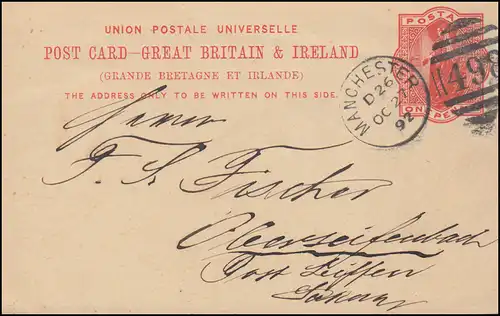 UNION POSTALE UNIVERSELLE
POST CARD—GREAT BRITAIN & IRELAND
(GRANDE BRETAGNE ET IRLANDE)
THE ADDRESS ONLY TO BE WRITTEN ON THIS SIDE.
POSTA
ON PEN
MANCHESTER
D 26
OC 27
92
498
Herrn
F. S. Fischer
Oberseifenbach
Post Seiffen
Sachsen